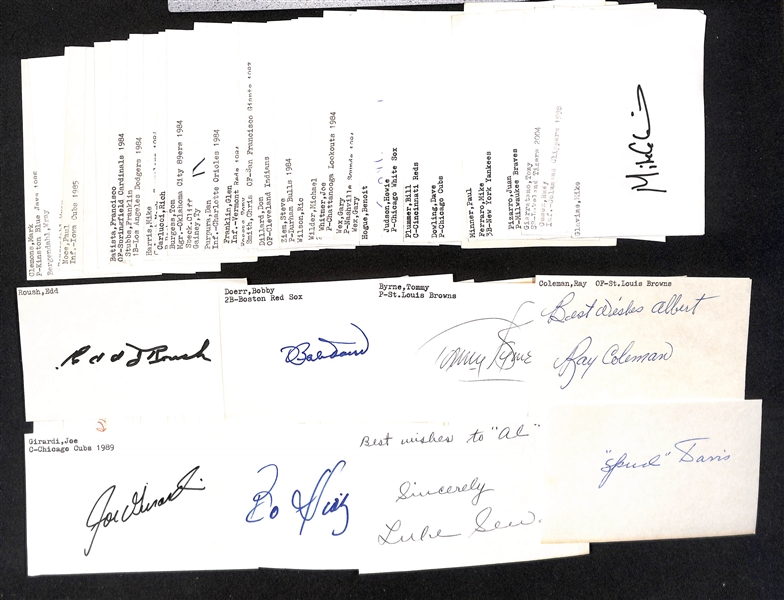 Clemens,Park
P-Kinston Blue Jays
Bergendahl,Wray
Noce,Paul
Inf.-Iowa Cubs 1985
Batista,Francisco
OF-Springfield Cardinals 1984
Stubbs,Franklin
1B-Los Angeles Dodgers 1984
Harris,Mike
Carlucci,Rich
Burgess,Tom
Mgr.-Oklahoma City 89ers 1984
Speck,Cliff
Gainey,Ty
Purpura,Dan
Inf.-Charlotte Orioles 1984
Franklin,Glen
Inf.-Vermont Reds
Smith,Chris OF-San Francisco Giants
Dillard,Don
OF-Cleveland Indians
Ziem,Steve
P-Durham Bulls 1984
Wilson,Ric
Wilder,Michael
Whitmer,Joe
P-Chattanooga Lookouts 1984
Wex,Gary
P-Nashville Sounds
Wex,Gary
Hogue,Benoit
Judson,Howie
P-Chicago White Sox
Plummer,Bill
C-Cincinnati Reds
Dowling,Dave
P-Chicago Cubs
Minner,Paul
Ferraro,Mike
3B-New York Yankees
Pizarro,Juan
P-Milwaukee Braves
Tigers 2004
Clippers 1990
Glavine,Mike
Roush,Edd
Edd J Roush
Doerr,Bobby
2B-Boston Red Sox
Bob Doerr
Byrne,Tommy
P-St.Louis Browns
Tommy Byrne
Coleman,Ray OF-St.Louis Browns
Best wishes Albert
Ray Coleman
Girardi,Joe
C-Chicago Cubs 1989
Joe Girardi
Bo Diaz
Best wishes to "Al"
Sincerely
Luke Sewell
"Spud" Davis